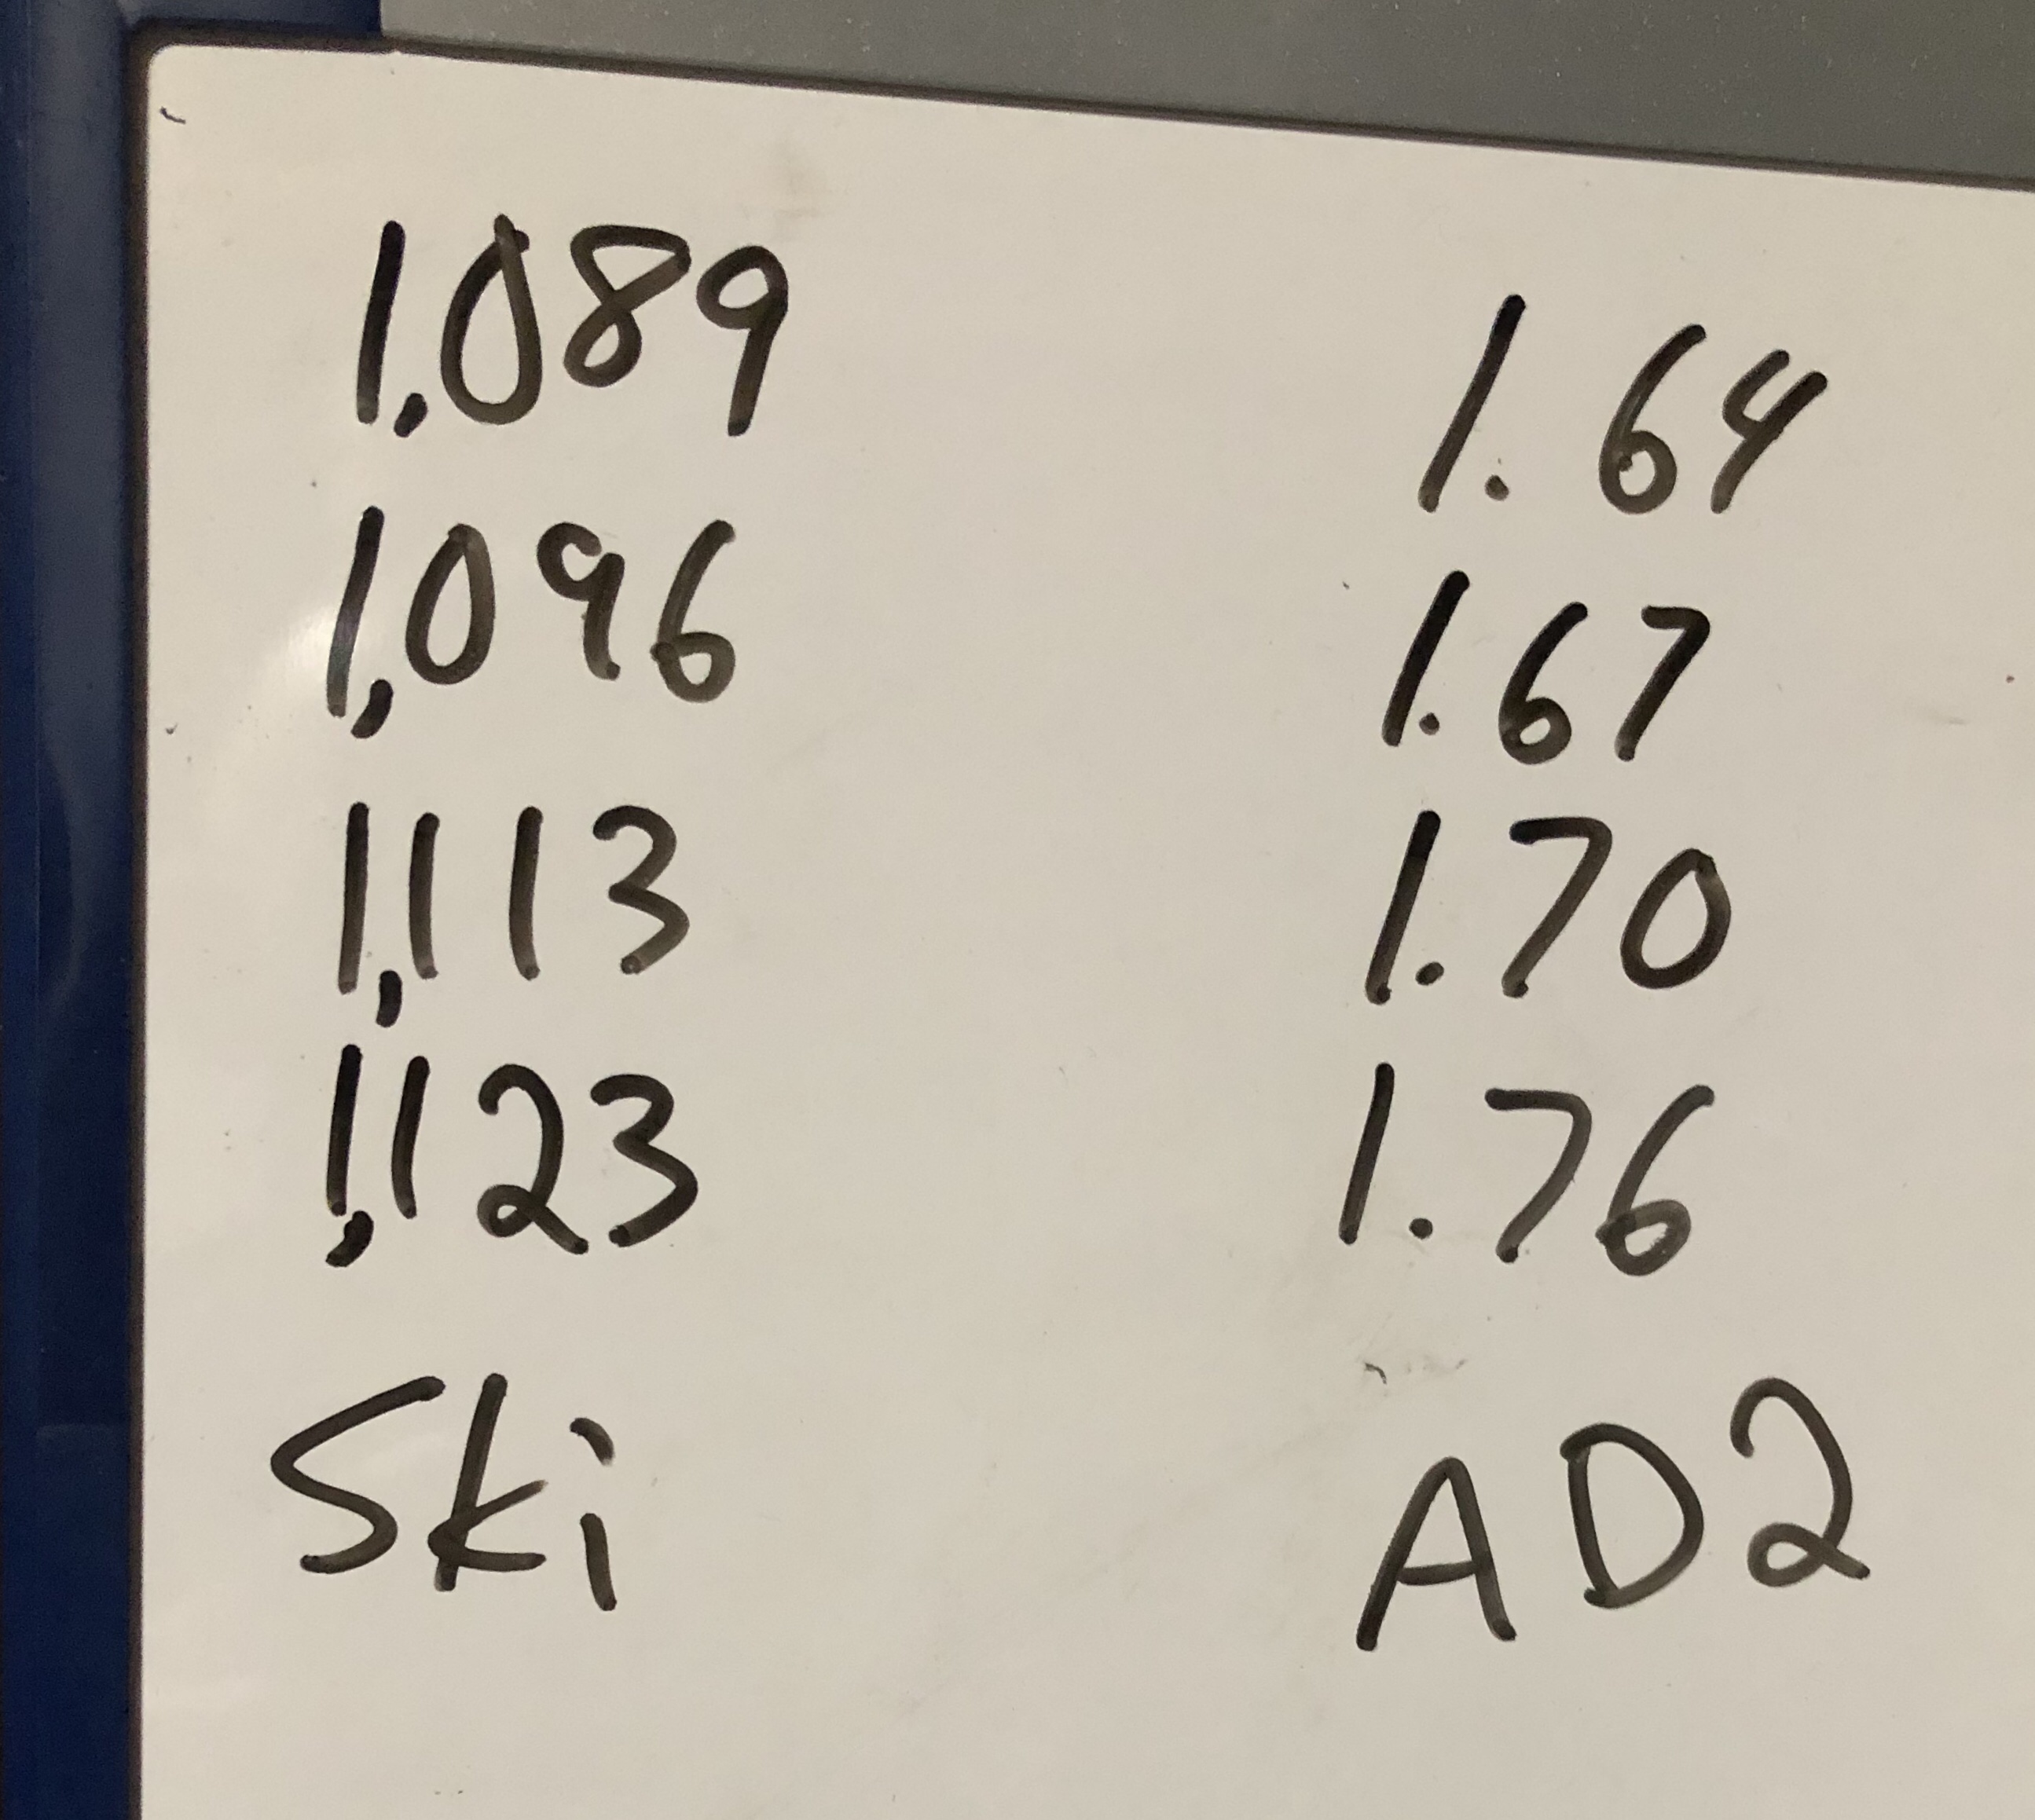 1,089
1,096
1,113
1,123
Ski
1.64
1.67
1.70
1.76
AD2